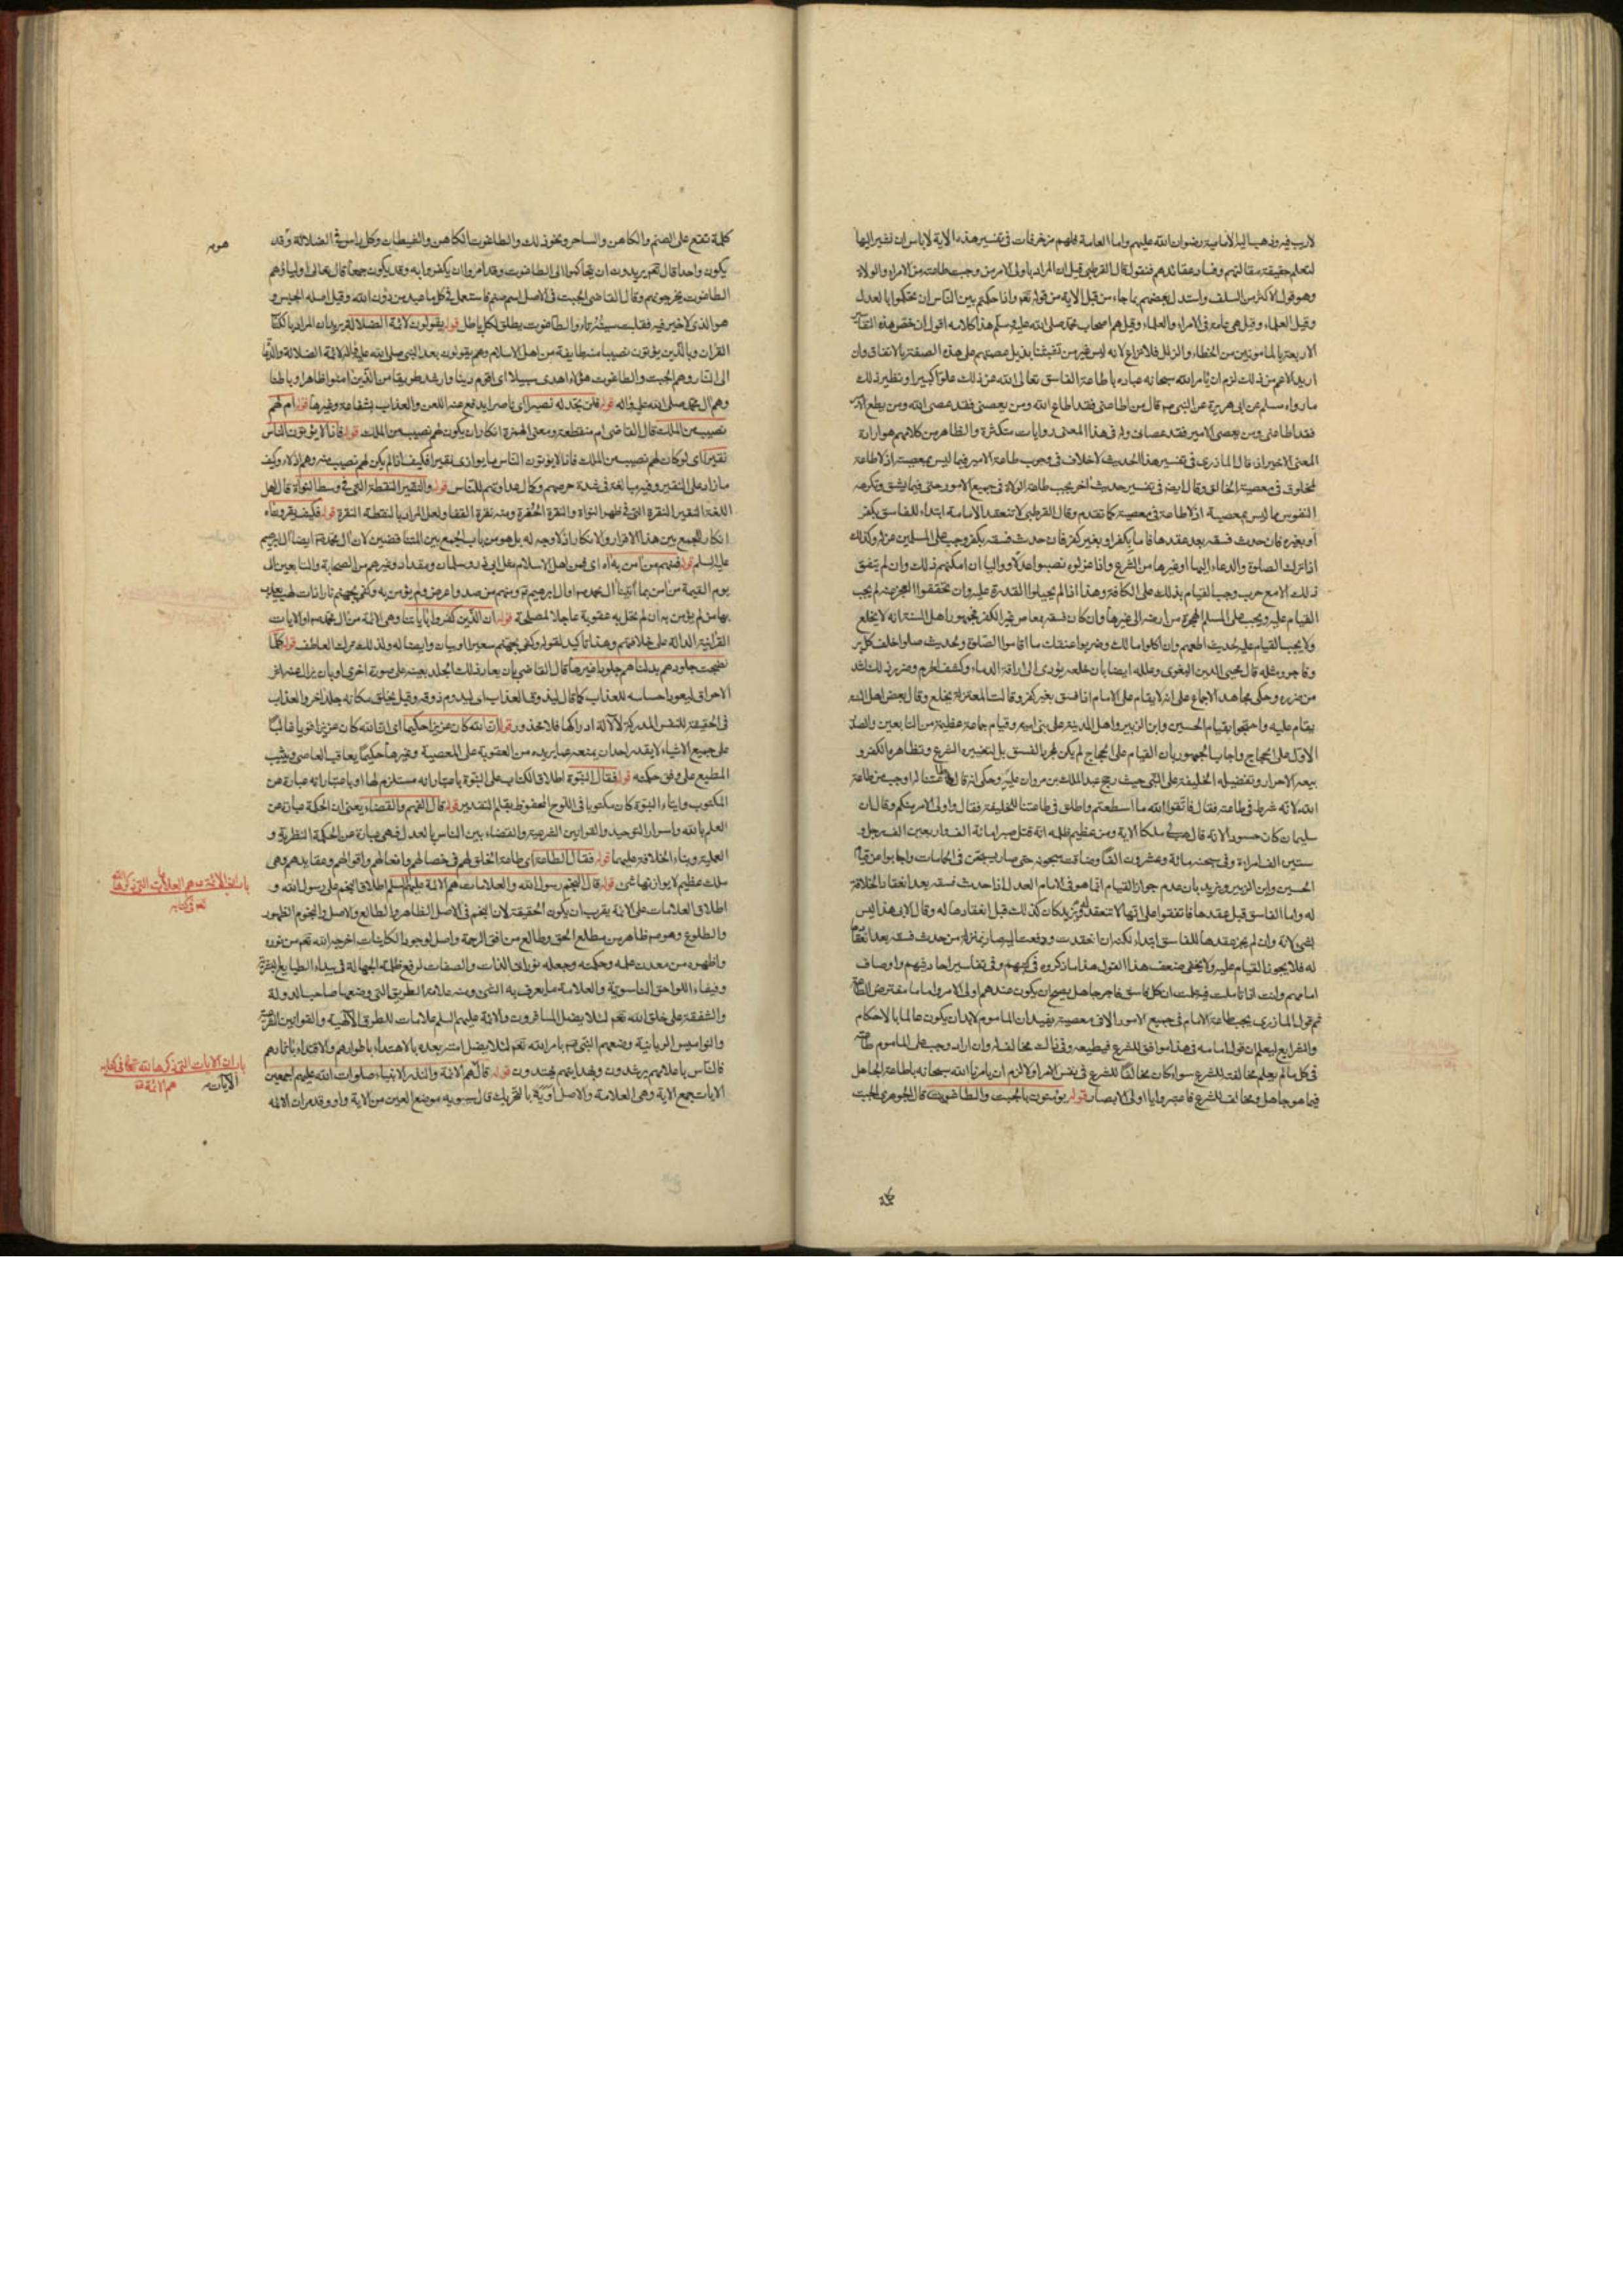 لاريب فيه وذهب اليه الامامية رضوان الله عليهم واما العامة فلهم مزخرفات في تفسير هذه الاية لاباس ان نشير اليها
لتعلم حقيقة مقالتهم وفساد عقائدهم فنقول قال القرطبي قيل ان المراد باولى الامر من وجبت طاعته من الامراء والولاة
وهو قول الاكثر من السلف واستدل بعضهم بما جاء من قبل الاية من قوله تعم واذا حكمتم بين الناس ان تحكموا بالعدل
وقيل العلماء وقيل هي عامة في الامراء والعلماء وقيل هم اصحاب محمد صلى الله عليه وسلم هذا كلامه اقول ان خصص هذه التفاسير
الاربعة بالمامونين من الخطاء والزلل فلا نزاع لانه ليس غير من تشبثنا بذيل عصمتهم على هذه الصفة بالاتفاق وان
اريد الاعم من ذلك لزم ان يامر الله سبحانه عباده باطاعة الفاسق تعالى الله عن ذلك علوا كبيرا ونظير ذلك
مارواه مسلم عن ابي هريرة عن النبي ص قال من اطاعني فقد اطاع الله ومن يعصني فقد عصى الله ومن يطع الامير
فقد اطاعني ومن يعصي الامير فقد عصاني وله في هذا المعنى روايات متكثرة والظاهر من كلامهم هو ارادة
المعنى الاخير اذ قال المازري في تفسير هذا الحديث لاخلاف في وجوب طاعة الامير فيما ليس بمعصية اذ لاطاعة
لمخلوق في معصية الخالق وقال ايضا في تفسير حديث اخر يجب طاعة الولاة في جميع الامور حتى فيما يشق وتكرهه
النفوس مما ليس بمعصية اذ لاطاعة في معصية كما تقدم وقال القرطبي لا تنعقد الامامة ابتداء للفاسق بكفر
او بغيره فان حدث فسقه بعد عقدها فاما بكفر او بغير كفر فان حدث فسقه بكفر وجب على المسلمين عزله وكذلك
اذا ترك الصلوة والدعاء اليها او غيرها من الشرع واذا عزلوه نصبوا عدلا وواليا ان امكنهم ذلك وان لم يتفق
ذلك الا مع حرب وجب القيام بذلك على الكافة وهذا اذا لم يخيلوا القدرة عليه وان تحققوا العجز عنه لم يجب
القيام عليه ويجب على المسلم الهجرة من ارضه الى غيرها وان كان فسقه بمعاص غير الكفر فجمهور اهل السنة انه لا يخلع
ولا يجب القيام عليه لحديث اطعهم وان اكلوا مالك وضربوا عنقك ما اقاموا الصلوة ولحديث صلوا خلف كل بر
وفاجر ومثله قال محيي الدين البغوي وعلله ايضا بان خلعه يؤدي الى اراقة الدماء وكشف الحرم وضرر ذلك اشد
من ضرره وحكى مجاهد الاجماع على انه لا يقام على الامام اذا فسق بغير كفر وقالت المعتزلة يخلع وقال بعض اهل السنة
يقام عليه واحتجوا بقيام الحسين وابن الزبير واهل المدينة على بني امية وقيام جماعة عظيمة من التابعين والصدر
الاول على الحجاج واجاب الجمهور بان القيام على الحجاج لم يكن لمجرد الفسق بل لتغييره الشرع وتظاهره بالكفر و
بيعه الاحرار وتفضيله الخليفة على النبي حيث رجح عبد الملك بن مروان عليه وحكى انه قال طاعتنا اوجب من طاعة
الله لانه شرط في طاعته فقال فاتقوا الله ما استطعتم واطلق في طاعتنا للخليفة فقال واولى الامر منكم وقال ان
سليمان كان حسودا لانه قال هب لي ملكا الاية ومن عظيم ظلمه انه قتل صبرا مائة الف واربعين الف رجل و
ستين الف امراة وفي سجنه مائة وعشرون الفا وضاقت سجونه حتى صار يسجن في الحمامات واجابوا عن قيام
الحسين وابن الزبير وغيره بان عدم جواز القيام انما هو في الامام العدل اذا حدث فسقه بعد انعقاد الخلافة
له واما الفاسق قبل عقدها فاتفقوا على انها لا تنعقد له ويزيد كان كذلك قبل انعقادها له وقال الابي هذا ليس
بشي لانه وان لم يجز عقدها للفاسق ابتداء لكنه ان انعقدت ودفعت اليه صار بمنزلة من حدث فسقه بعد انعقاد
له فلا يجوز القيام عليه ولا يخفى ضعف هذا القول هذا ما ذكروه في كتبهم وفي تفاسير احاديثهم واوصاف
امامهم وانت اذا تاملت فيه علمت ان كل فاسق فاجر جاهل يصح ان يكون عندهم اولى الامر واماما مفترض الطاعة
ثم قول المازري يجب طاعة الامام في جميع الامور الا في معصية يفيد ان الماموم لابد ان يكون عالما بالاحكام
والشرايع ليعلم ان قول امامه في هذا موافق للشرع فيطيعه وفي ذلك مخالف له وان اراد وجب على الماموم طاعته
في كل مالم يعلم مخالفته للشرع سواء كان مخالفا للشرع في نفس الامر او لا لزم ان يامرنا الله سبحانه باطاعة الجاهل
فيما هو جاهل ومخالف للشرع فاعتبروا يا اولى الابصار قوله يؤمنون بالجبت والطاغوت قال الجوهري الجبت
كلمة تقع على الصنم والكاهن والساحر ونحو ذلك والطاغوت الكاهن والشيطان وكل راس في الضلالة وقد
يكون واحدا قال تعم يريدون ان يتحاكموا الى الطاغوت وقد امروا ان يكفروا به وقد يكون جمعا قال تعالى اولياؤهم
الطاغوت يخرجونهم وقال القاضي الجبت في الاصل اسم صنم فاستعمل في كل ما عبد من دون الله وقيل اصله الجبس و
هو الذي لا خير فيه فقلبت سينه تاء والطاغوت يطلق لكل باطل قوله يقولون لائمة الضلالة يريد ان المراد بالكتاب
القران وبالذين يؤتون نصيبا منه طايفة من اهل الاسلام وهم يقولون بعد النبي صلى الله عليه واله لائمة الضلالة والدعاة
الى النار وهم الجبت والطاغوت هؤلاء اهدى سبيلا اي اقوم دينا وارشد طريقا من الذين امنوا ظاهرا وباطنا
وهم ال محمد صلى الله عليه واله قوله فلن تجد له نصيرا اي ناصرا يدفع عنه اللعن والعذاب بشفاعة وغيرها قوله ام لهم
نصيب من الملك قال القاضي ام منقطعة ومعنى الهمزة انكار ان يكون لهم نصيب من الملك قوله فاذا لا يؤتون الناس
نقيرا اي لو كان لهم نصيب من الملك فاذا لا يؤتون الناس ما يوازي نقيرا فكيف اذا لم يكن لهم نصيب منه وهم اذلاء وكيف
ما زاد على النقير وفيه مبالغة في شدة حرصهم وكمال عداوتهم للناس قوله والنقير النقطة التي في وسط النواة قال اهل
اللغة النقير النقرة التي في ظهر النواة والنقرة الحفرة ومنه نقرة القفا ولعل المراد بالنقطة النقرة قوله فكيف يقرون به
انكار للجمع بين هذا الاقرار والانكار اذ لا وجه له بل هو من باب الجمع بين المتناقضين لان ال محمد ص ايضا ال ابرهيم
عليه السلم قوله فمنهم من امن به اه اي فمن اهل الاسلام مثل ابي ذر وسلمان ومقداد وغيرهم من الصحابة والتابعين الى
يوم القيمة من امن بما اتينا ال محمد ص او ال ابرهيم ع ومنهم من صد واعرض ولم يؤمن به وكفى بجهنم نارا ذات لهب يعذب
بها من لم يؤمن به ان لم نعجل به عقوبة عاجلا لمصلحة قوله ان الذين كفروا باياتنا وهي الائمة من ال محمد ص او الايات
القرانية الدالة على خلافتهم وهذا تاكيد لقوله وكفى بجهنم سعيرا او بيان وايضا له ولذلك ترك العاطف قوله كلما
نضجت جلودهم بدلناهم جلودا غيرها قال القاضي بان يعاد ذلك الجلد بعينه على صورة اخرى او بان يزال عنه اثر
الاحراق ليعود احساسه للعذاب كما قال ليذوقوا العذاب اي ليدوم ذوقه وقيل يخلق مكانه جلد اخر والعذاب
في الحقيقة للنفس المدركة لا لالة ادراكها فلا محذور قوله ان الله كان عزيزا حكيما اي ان الله كان عزيزا قويا غالبا
على جميع الاشياء لا يقدر احد ان يمنعه عما يريده من العقوبة على المعصية وغيرها حكيما يعاقب العاصي ويثيب
المطيع على وفق حكمته قوله فقال النبوة اطلاق الكتاب على النبوة باعتبار انه مستلزم لها او باعتبار انه عبارة عن
المكتوب وايتاء النبوة كان مكتوبا في اللوح المحفوظ بقلم التقدير قوله قال الفهم والقضاء يعني ان الحكمة عبارة عن
العلم بالله واسرار التوحيد والقوانين الشرعية والقضاء بين الناس بالعدل فهي عبارة عن الحكمة النظرية و
العملية وبناء الخلافة عليهما قوله فقال الطاعة اي طاعة الخلق لهم في خصالهم وافعالهم واقوالهم وعقايدهم وهي
ملك عظيم لا يوازنها شئ قوله قال النجم رسول الله والعلامات هم الائمة عليهم السلم اطلاق النجم على رسول الله و
اطلاق العلامات على الائمة يقرب ان يكون الحقيقة لان النجم في الاصل الظاهر والطالع والاصل والنجوم الظهور
والطلوع وهو ص ظاهر من مطلع الحق وطالع من افق الرحمة واصل لوجود الكاينات اخرجه الله تعم من نوره
واظهره من معدن علمه وحكمته وجعله نورا في الذات والصفات لرفع ظلمة الجهالة في بيداء الطبايع البشرية
وفيفاء اللواحق الناسوتية والعلامة ما يعرف به الشئ ومنه علامة الطريق التي وضعها صاحب الدولة
والشفقة على خلق الله تعم لئلا يضل المسافرون والائمة عليهم السلم علامات للطرق الالهية والقوانين الشرعية
والنواميس الربانية وضعهم النبي ص بامر الله تعم لئلا يضل امته بعده بالاهتداء باطوارهم والاقتداء باثارهم
فالناس باعلامهم يرشدون وبهدايتهم يهتدون قوله قال هم الائمة والنذر الانبياء صلوات الله عليهم اجمعين
الايات جمع الاية وهي العلامة والاصل اوية بالتحريك قال سيبويه موضع العين من الاية واو وقد مر ان الائمة
باب ان الائمة ع هم العلامات التي ذكرها الله
تعم في كتابه
باب ان الايات التي ذكرها الله تعالى في كتابه
هم الائمة ع